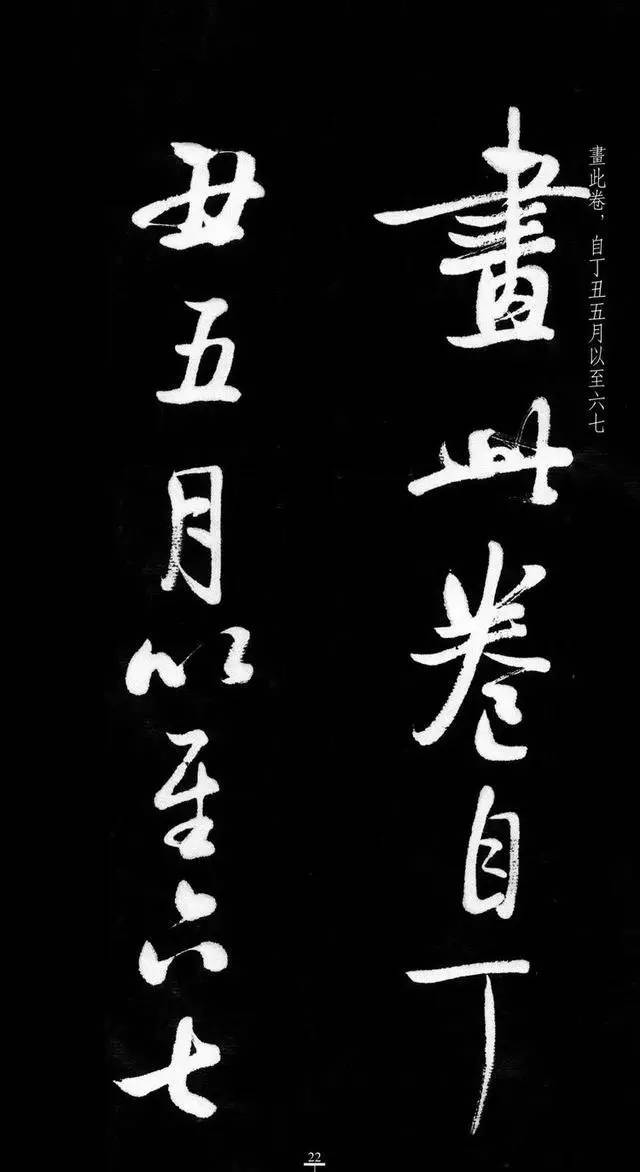 畫此卷，自丁丑五月以至六七
畫此卷自丁
丑五月以至六七
22